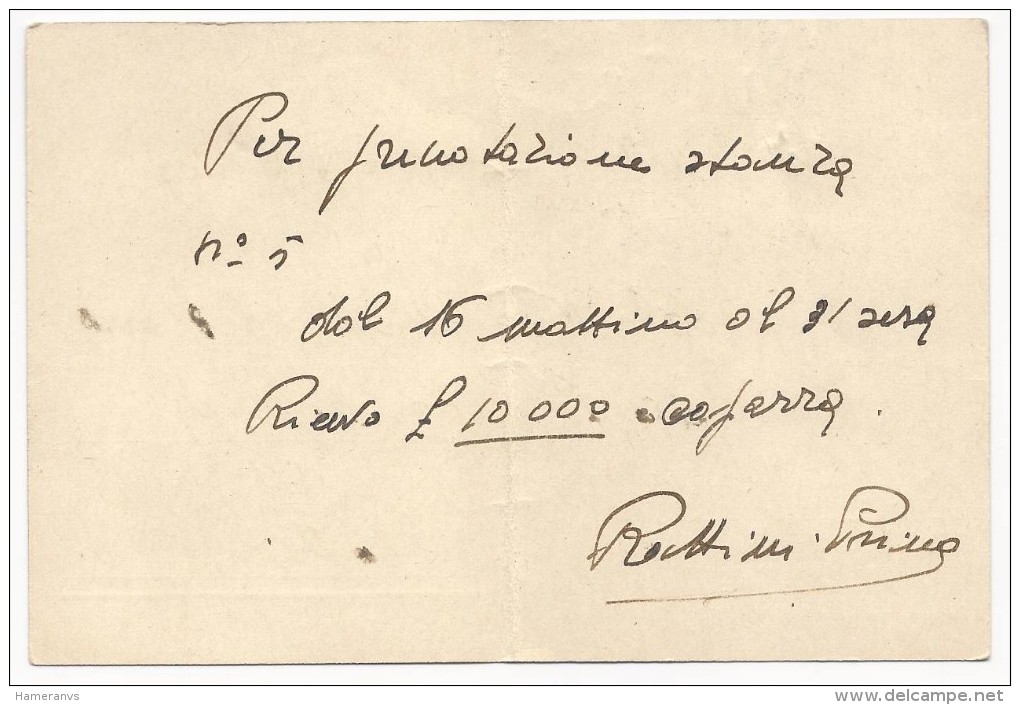 Per prenotazione stanza
N° 5
dal 16 mattino al 31 sera
Ricevo £ 10 000 caparra.
Rattini Prima
Hameranvs
www.delcampe.net